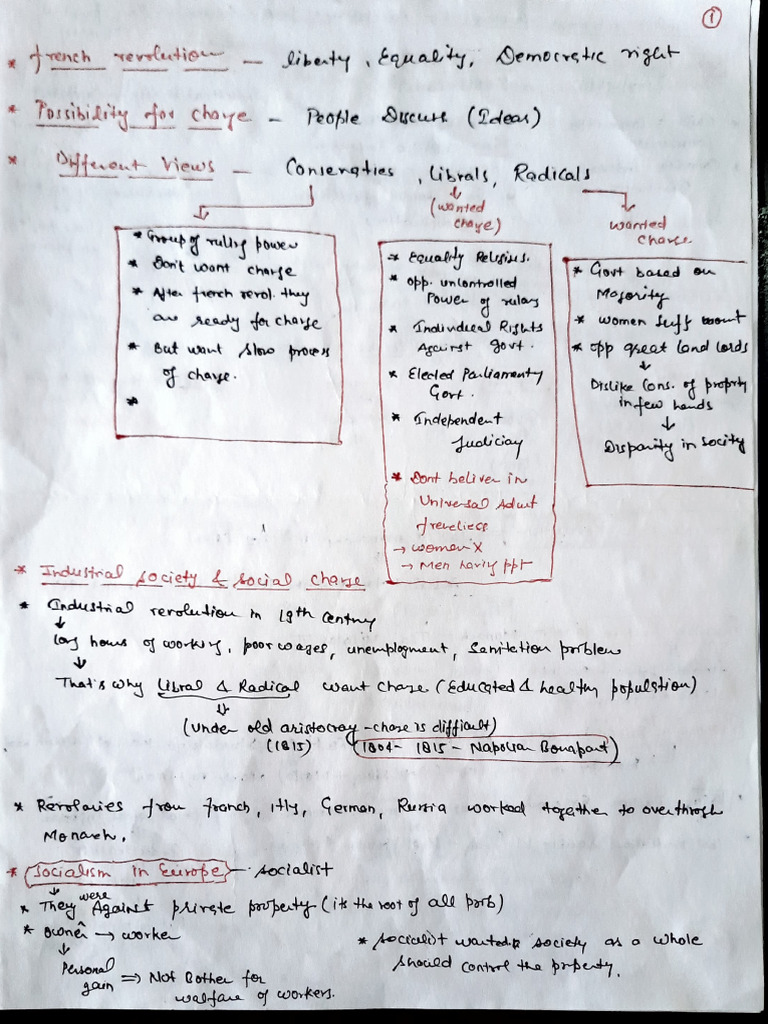 1
* French revolution - liberty, Equality, Democratic right
* Possibility for change - People Discuss (Ideas)
* Different views - Conservaties, Librals, Radicals
(wanted change)
wanted change.
* Group of ruling power
* Don't want change
* After french revol. they are ready for change
* But want slow process of change.
*
* Equality Religius.
* opp. uncontrolled Power of rulers
* Individual Rights Against govt.
* Elected Parliamenty Govt.
* Independent Judiciay
* Dont beliver in Universal Adult
→ women X
→ Men having ppt
* Govt based on Majority
* women suff
* opp great land lords
↓
Dislike Cons. of proprty in few hands
↓
Disparity in socity
* Industrial society & social change
* Industrial revolution in 19th century
↓
long hours of working, poor wages, unemployment, Sanitation problem
↓
That's why Libral & Radical want change (Educated & healthy population)
↓
(Under old aristocray - change is difficult)
(1815) (1804 - 1815 - Napolian Bonapart)
* from french, itly, German, Russia worked together to overthrogh Monarch.
* Socialism in Europe - socialist
↓
* They were Against private property (its the root of all porb)
* owner → worker
↓
Personal gain ⇒ Not Bother for walfare of workers.
* socialist wanted society as a whole should control the property.